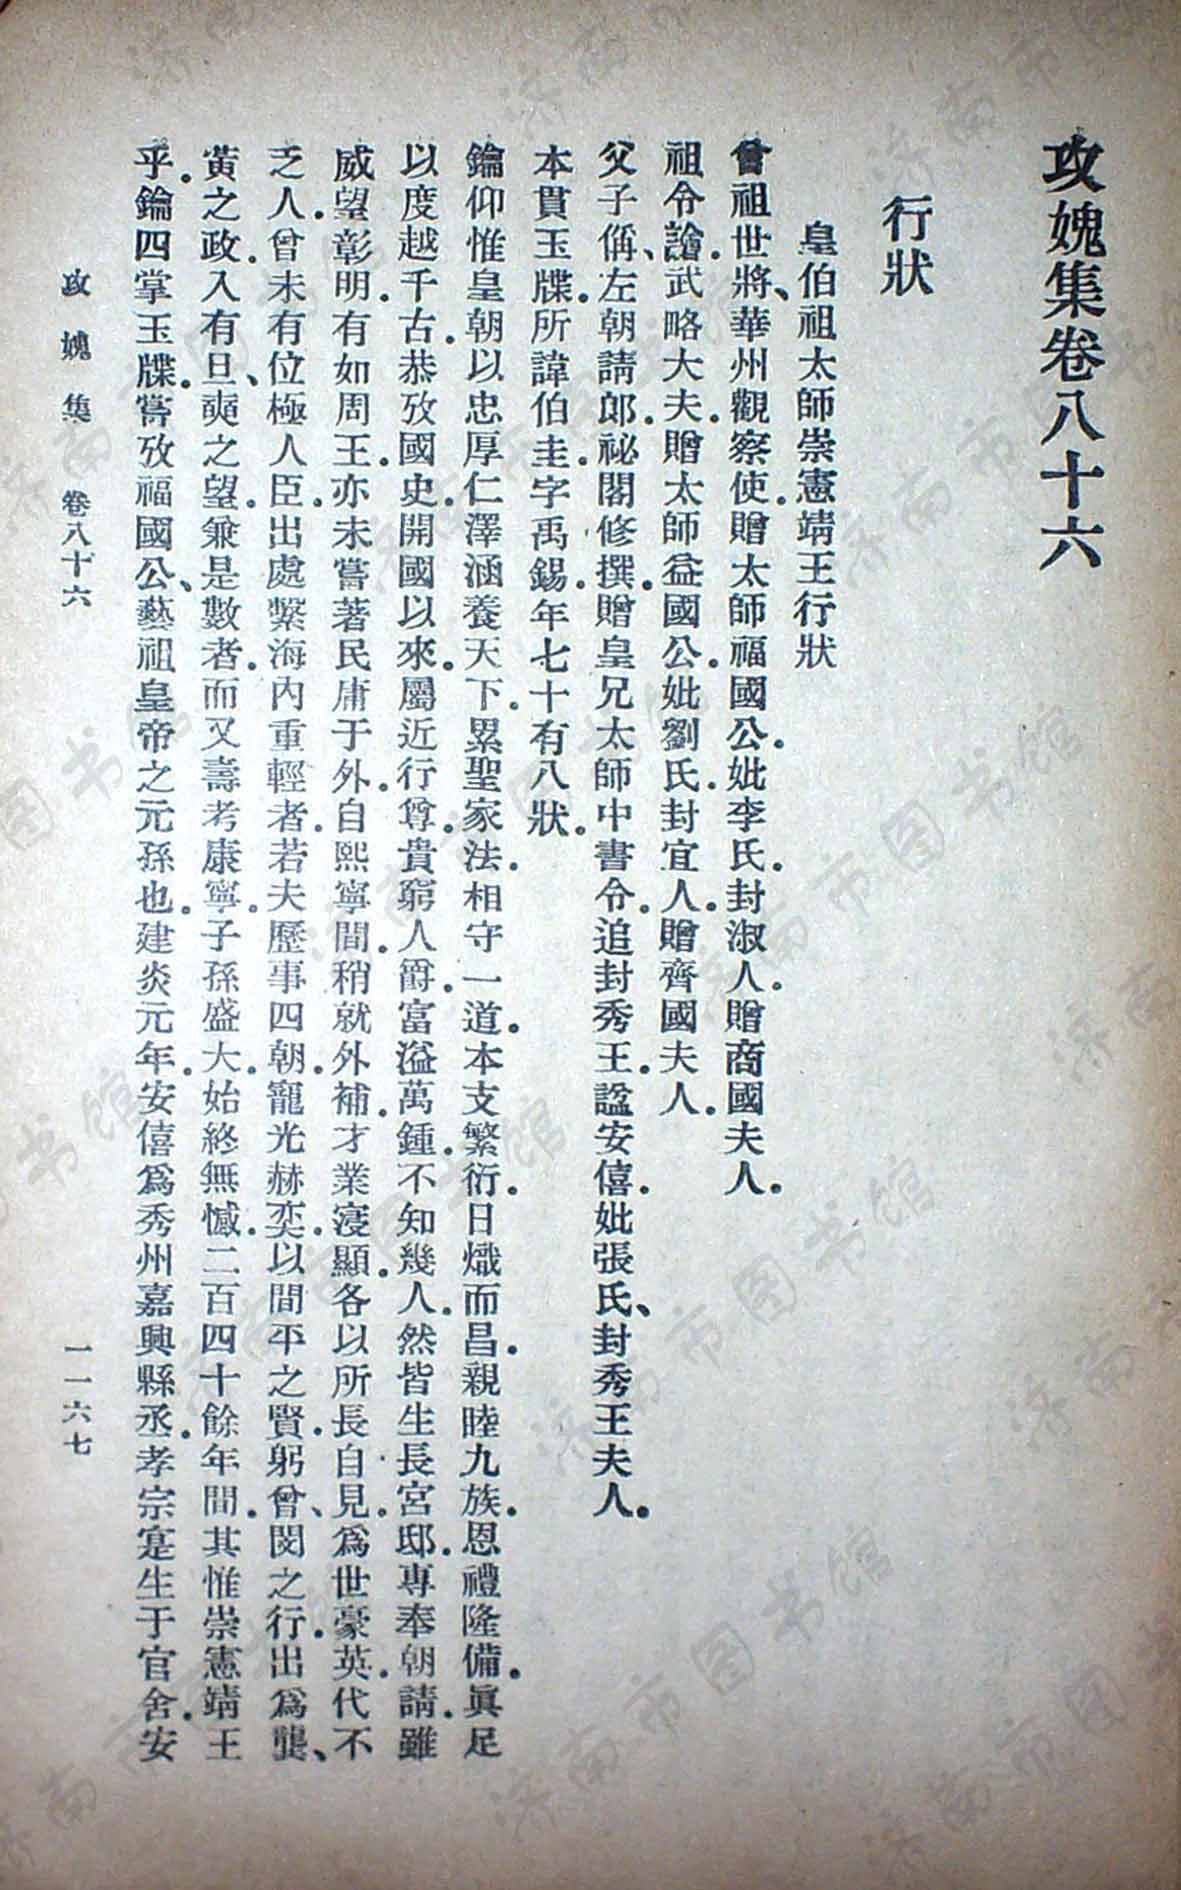 攻媿集卷八十六
行狀
皇伯祖太師崇憲靖王行狀
曾祖世將、華州觀察使。贈太師福國公。妣李氏。封淑人。贈商國夫人。
祖令譮。武略大夫。贈太師益國公。妣劉氏。封宜人。贈齊國夫人。
父子偁、左朝請郎。祕閣修撰。贈皇兄太師中書令。追封秀王。諡安僖。妣張氏、封秀王夫人。
本貫玉牒。所諱伯圭。字禹錫。年七十有八狀。
鑰仰惟皇朝以忠厚仁澤涵養天下。累聖家法。相守一道。本支繁衍。日熾而昌。親睦九族。恩禮隆備。眞足
以度越千古。恭攷國史。開國以來。屬近行尊。貴窮人爵。富溢萬鍾。不知幾人。然皆生長宮邸。專奉朝請。雖
威望彰明。有如周王。亦未嘗著民庸于外。自熙寧間。稍就外補。才業寖顯。各以所長自見。爲世豪英。代不
乏人。曾未有位極人臣。出處繫海內重輕者。若夫歷事四朝。寵光赫奕。以間平之賢。躬曾、閔之行。出爲龔、
黃之政。入有旦、奭之望。兼是數者。而又壽考康寧。子孫盛大。始終無憾。二百四十餘年間。其惟崇憲靖王
乎。鑰四掌玉牒。嘗攷福國公、藝祖皇帝之元孫也。建炎元年。安僖爲秀州嘉興縣丞。孝宗寔生于官舍。安
攻媿集 卷八十六 一一六七
济南市图书馆